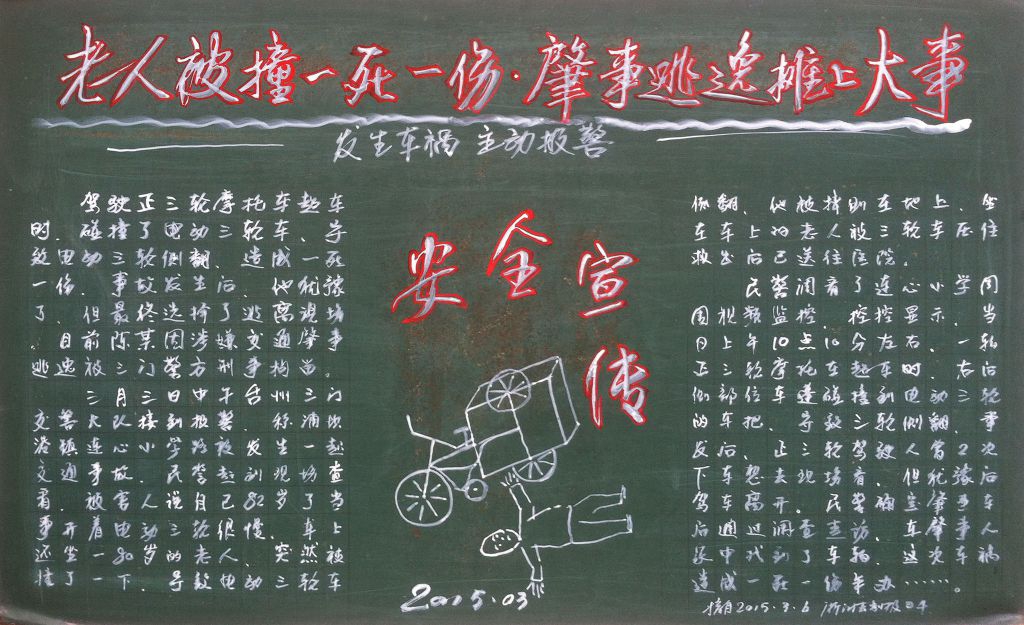 老人被撞一死一伤·肇事逃逸摊上大事
发生车祸 主动报警
驾驶正三轮摩托车超车
时，碰撞了电动三轮车，导
致电动三轮侧翻，造成一死
一伤，事故发生后，他犹豫
了，但最终选择了逃离现场
，目前陈某因涉嫌交通肇事
逃逸被三门警方刑事拘留。
三月三日中午台州三门
交警大队接到报警，称浦坝
港镇连心小学路段发生一起
交通事故，民警赶到现场查
看，被害人说自己82岁了当
事开着电动三轮很慢，车上
还坐一80岁的老人，突然被
撞了一下，导致电动三轮车
安全宣传
2015.03
侧翻，他被摔倒在地上，坐
在车上的老人被三轮车压住
救出后已送往医院。
民警调看了连心小学周
围视频监控，监控显示，当
日上午10点10分左右，一辆
正三轮摩托车超车时，右后
侧部位车逢碰撞到电动三轮
的车把，导致三轮侧翻，事
发后，正三轮驾驶人曾2次
下车想去现场看，但犹豫后
驾车离开。民警确定肇事车
后通过调查走访，在肇事人
家中找到了车辆，这次车祸
造成一死一伤事办……。
摘自2015.3.6 浙江法制报04